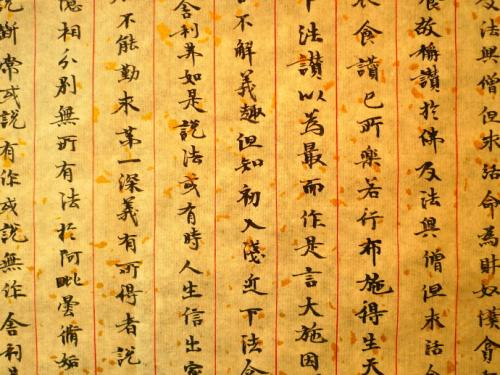 及法與僧但求活命為財奴
故稱讚於佛及法與僧但求活
衣食讚已所樂若行布施得生天
下法讚以為最而作是言大施因
不解義趣但知初入淺近下法
舍利弗如是說法或有時人生信出家
不能勤求第一深義有所得者說
憶相分別無所有法於阿毗曇脩妬
說斷常或說有作或說無作舍利弗